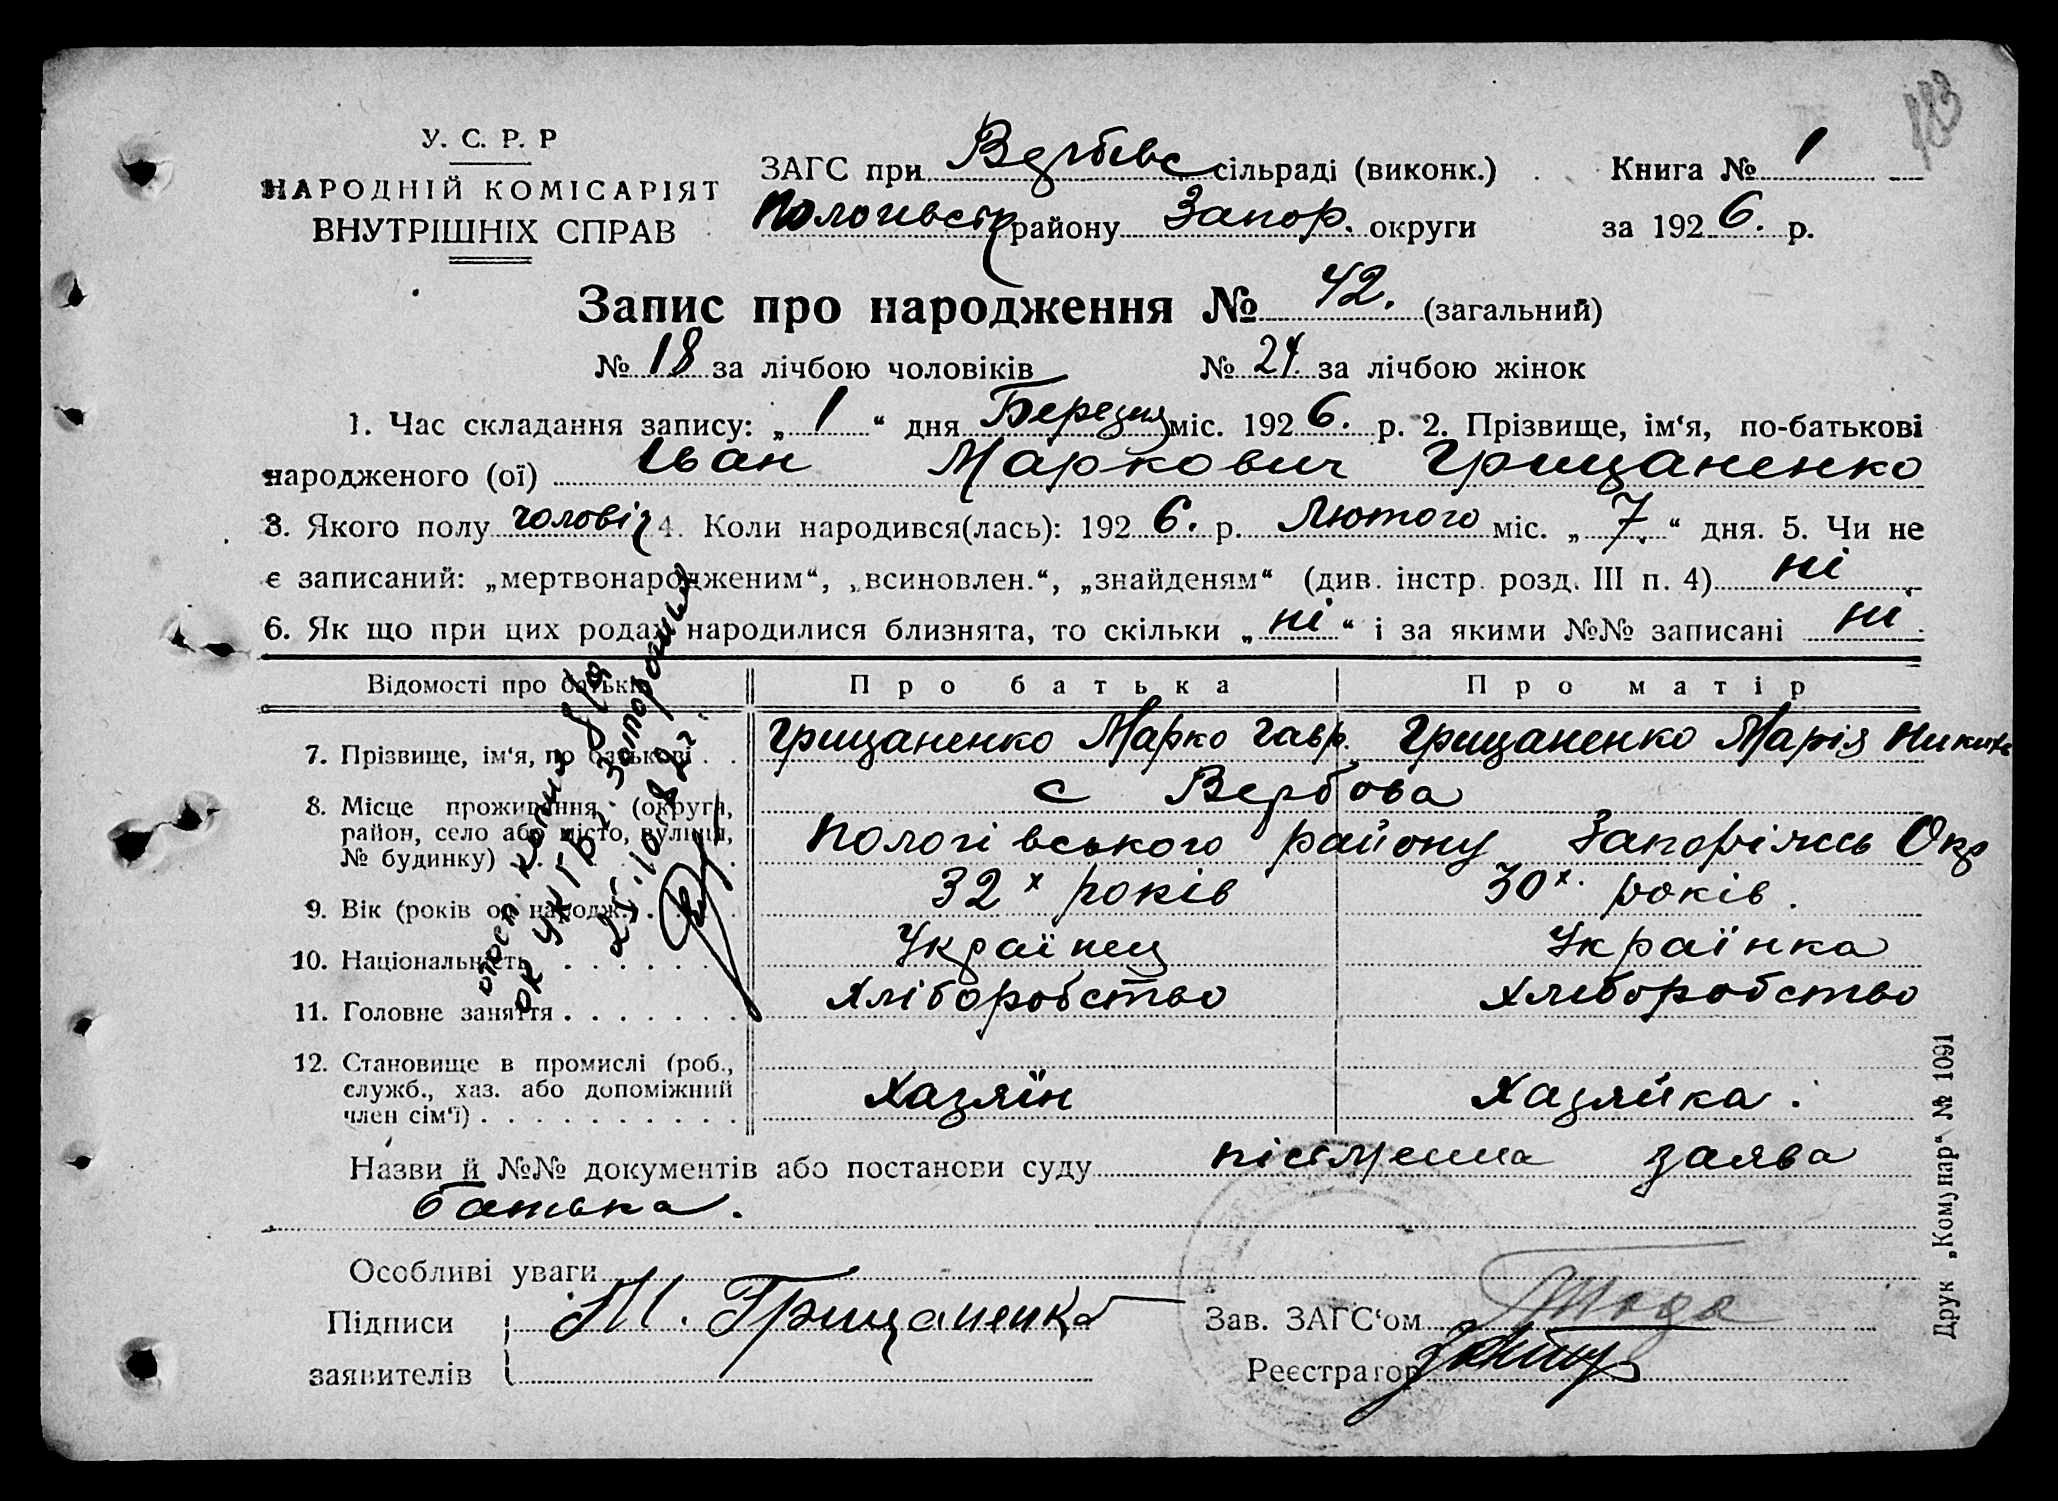 183
У. С. Р. Р
НАРОДНІЙ КОМІСАРІЯТ
ВНУТРІШНІХ СПРАВ
ЗАГС при Вербівс сільраді (виконк.) Книга № 1
Пологівськ району Запор. округи за 1926. р.
Запис про народження № 42. (загальний)
№ 18 за лічбою чоловіків № 24. за лічбою жінок
1. Час складання запису: „1“ дня Березня міс. 1926. р. 2. Прізвище, ім‘я, по-батькові
народженого (ої) Іван Маркович Грищаненко
3. Якого полу чоловіч 4. Коли народився(лась): 1926. р. Лютого міс. „7“ дня. 5. Чи не
є записаний: „мертвонародженим“, „всиновлен.“, „знайденям“ (див. інстр. розд. III п. 4) ні
6. Як що при цих родах народилися близнята, то скільки „ні“ і за якими №№ записані ні
Відомості про батьків Про батька Про матір
7. Прізвище, ім‘я, по батькові . . Грищаненко Марко Гавр. Грищаненко Марія Никит
8. Місце проживання, (округа, с Вербова
район, село або місто, вулиця,
№ будинку) . . Пологівського району Запоріжсь Окр
9. Вік (років од народж.) . . 32х років 30х. років.
10. Національність . . . . . . Українец Українка
11. Головне заняття . . . . . . . Хліборобство Хлеборобство
12. Становище в промислі (роб.,
служб., хаз. або допоміжний
член сім‘ї) . . . . . . . . . . Хазяїн Хазяйка.
Назви й №№ документів або постанови суду пісьменна заява
батька.
Особливі уваги
Підписи М. Грищаненка Зав. ЗАГС‘ом
заявителів Реєстратор
копия для
УКГБ г. Запорожья
Друк „Комунар“ № 1091